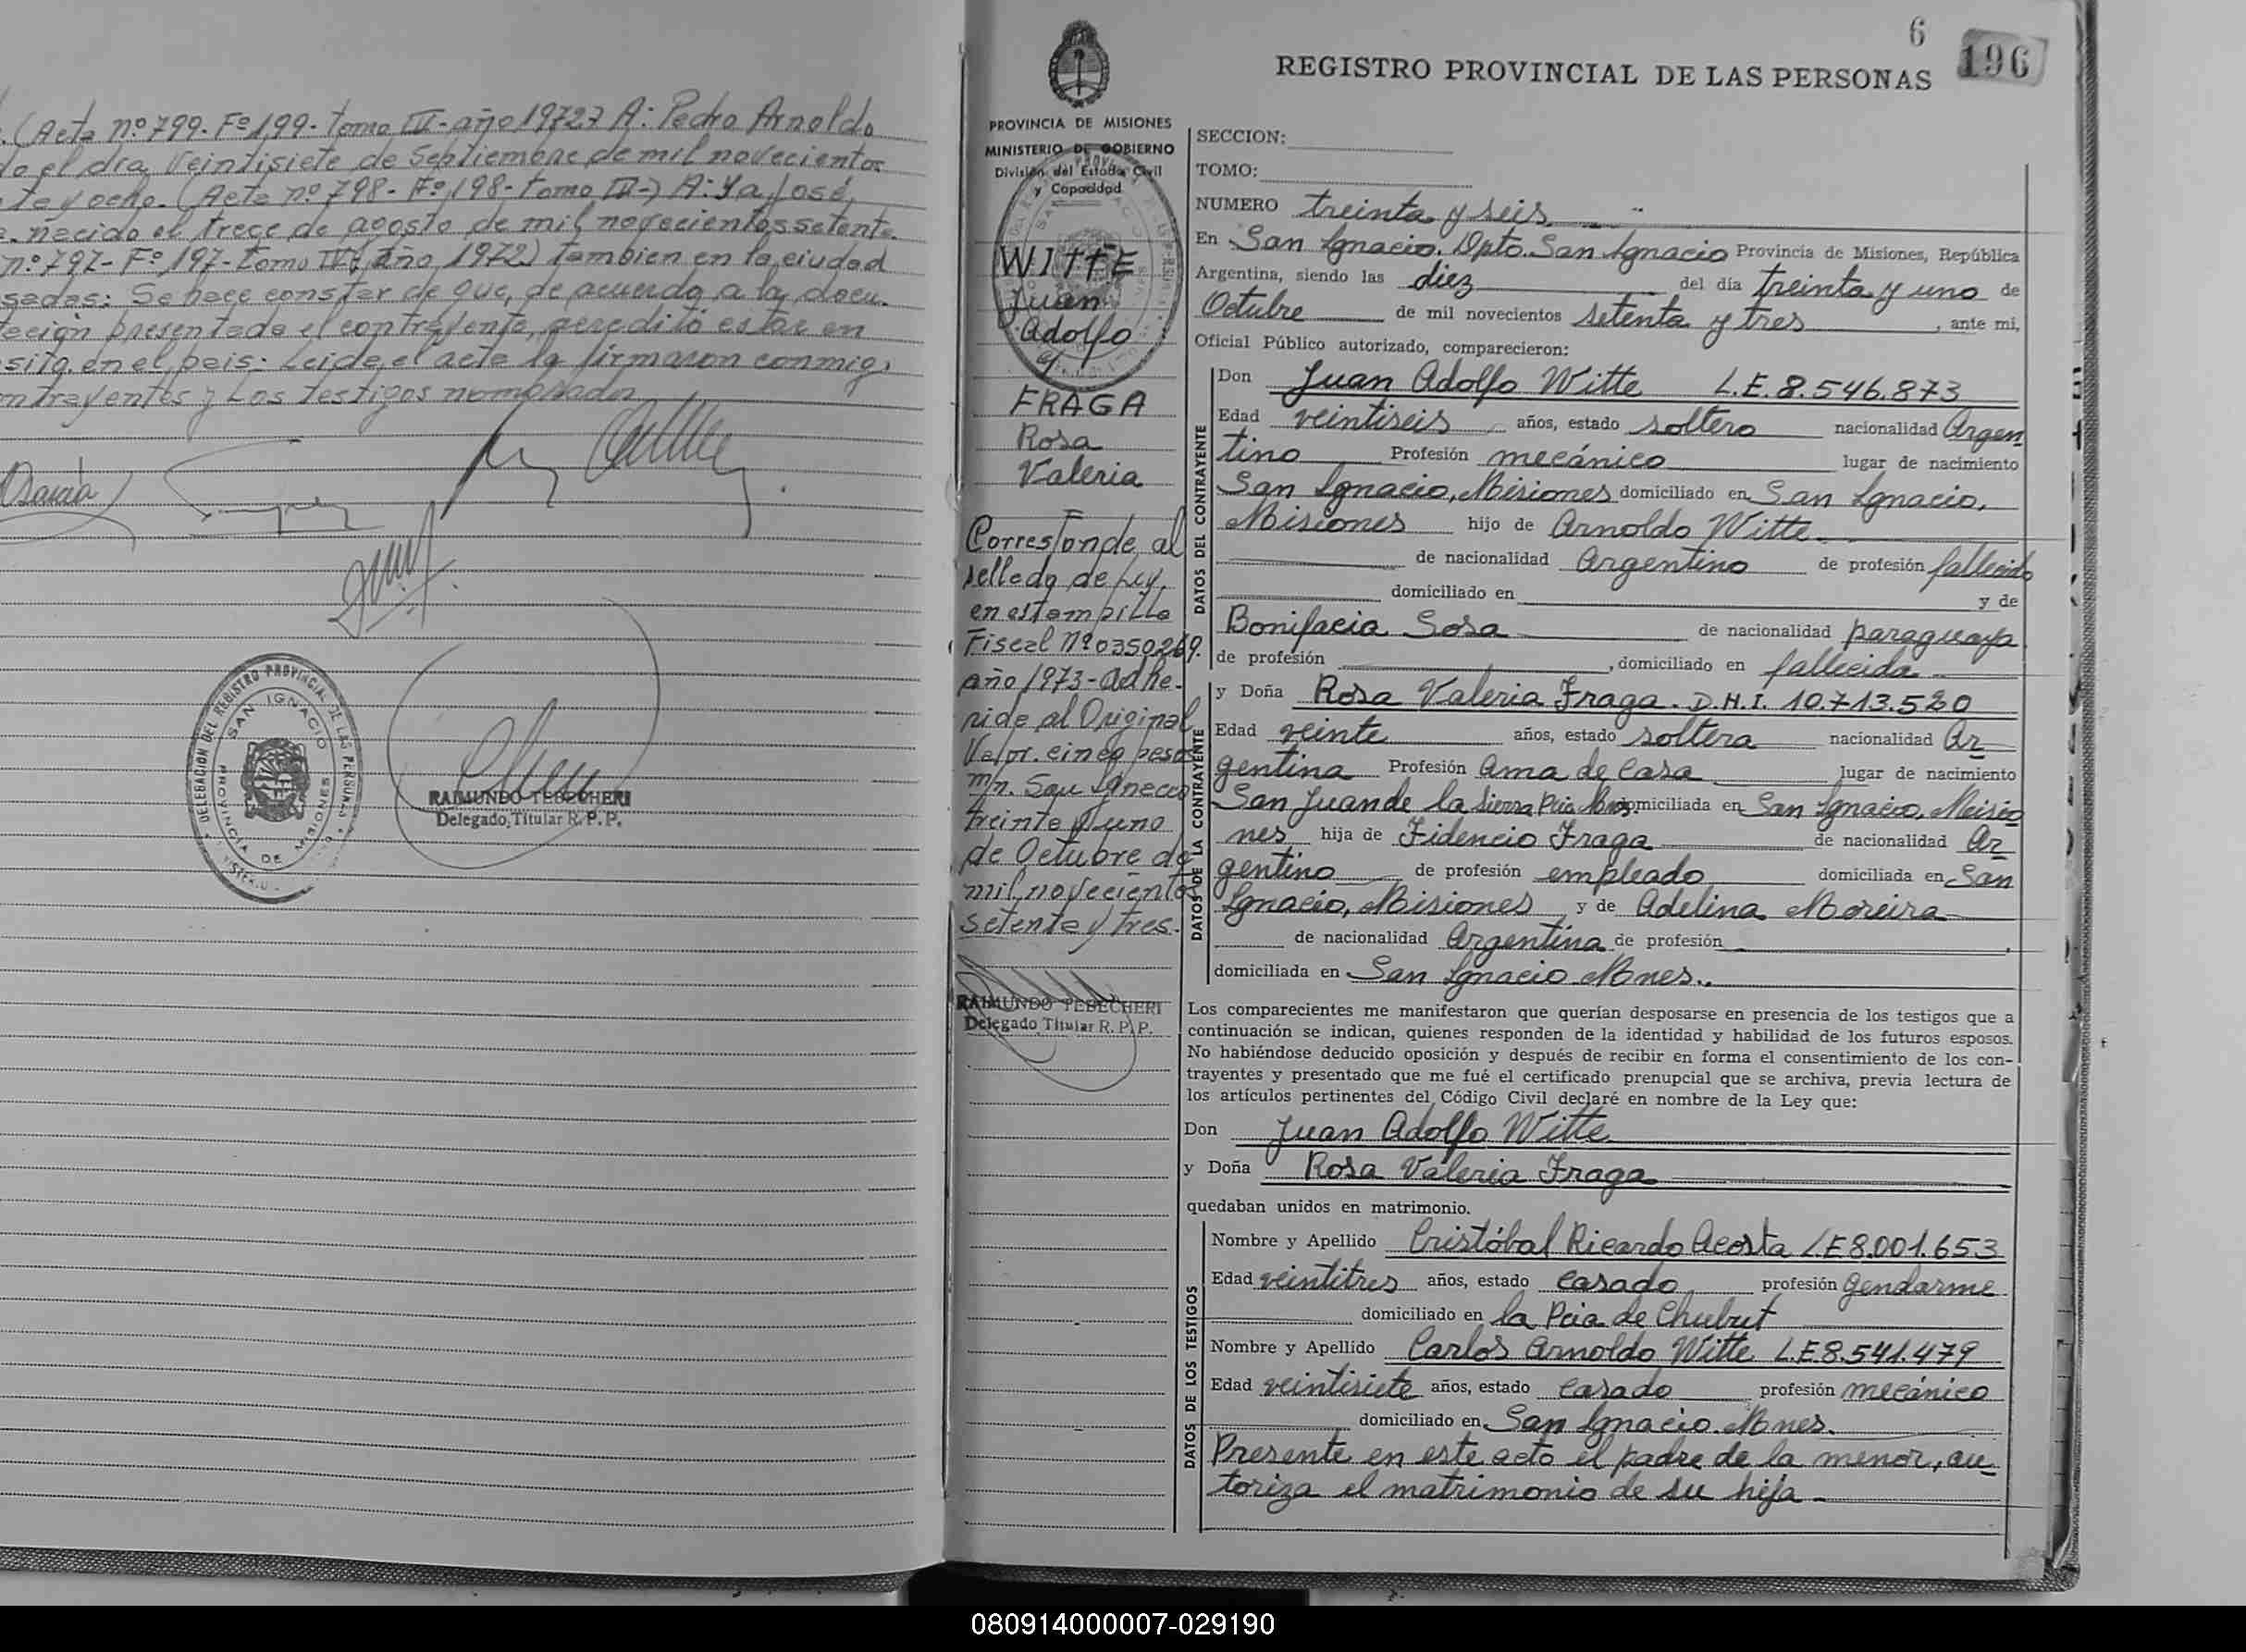 (Acta nº 799. Fº 199- tomo III- año 1972) A: Pedro Arnoldo
el día Veintisiete de Septiembre de mil novecientos
ta y ocho. (Acta nº 798- Fº 198- tomo III-) A: Ya José,
nacido el trece de agosto de mil novecientos setenta
nº 797- Fº 197- tomo IV, año 1972) tambien en la ciudad
sadas: Se hace constar de que, de acuerdo a la docu.
tación presentada el contrayente, acreditó estar en
sito, en el país: Leida el acta la firmaron conmigo
ntrayentes y Los testigos nombrados
García
DELEGACION DEL REGISTRO PROVINCIAL DE LAS PERSONAS
SAN IGNACIO
PROVINCIA DE MISIONES
RAIMUNDO TEBECHERI
Delegado Titular R. P. P.
6
196
REGISTRO PROVINCIAL DE LAS PERSONAS
PROVINCIA DE MISIONES
MINISTERIO DE GOBIERNO
División del Estado Civil
y Capacidad
WITTE
Juan
Adolfo
c/
FRAGA
Rosa
Valeria
Corresponde al
sellado de Ley,
en estampilla
Fiscal Nº 0350269.
año 1973- adhe-
rida al Original
Valor. cinco pesos
m/n. San Ignacio
treinta y uno
de Octubre de
mil novecientos
setenta y tres.
RAIMUNDO TEBECHERI
Delegado Titular R. P. P.
SECCION:
TOMO:
NUMERO treinta y seis.
En San Ignacio. Dpto. San Ignacio Provincia de Misiones, República
Argentina, siendo las diez del día treinta y uno de
Octubre de mil novecientos setenta y tres, ante mi,
Oficial Público autorizado, comparecieron:
DATOS DEL CONTRAYENTE
Don Juan Adolfo Witte L.E. 8.546.873
Edad veintiseis años, estado soltero nacionalidad Argen
tino Profesión mecánico lugar de nacimiento
San Ignacio, Misiones domiciliado en San Ignacio,
Misiones hijo de Arnoldo Witte
de nacionalidad Argentino de profesión fallecido
domiciliado en y de
Bonifacia Sosa de nacionalidad paraguaya
de profesión , domiciliado en fallecida
DATOS DE LA CONTRAYENTE
y Doña Rosa Valeria Fraga. D.N.I. 10.713.520
Edad veinte años, estado soltera nacionalidad Ar
gentina Profesión Ama de Casa lugar de nacimiento
San Juan de la Sierra Pcia Mnes. domiciliada en San Ignacio, Misio
nes hija de Fidencio Fraga de nacionalidad Ar
gentino de profesión empleado domiciliada en San
Ignacio, Misiones y de Adelina Moreira
de nacionalidad Argentina de profesión ,
domiciliada en San Ignacio Mnes..
Los comparecientes me manifestaron que querían desposarse en presencia de los testigos que a
continuación se indican, quienes responden de la identidad y habilidad de los futuros esposos.
No habiéndose deducido oposición y después de recibir en forma el consentimiento de los con-
trayentes y presentado que me fué el certificado prenupcial que se archiva, previa lectura de
los artículos pertinentes del Código Civil declaré en nombre de la Ley que:
Don Juan Adolfo Witte
y Doña Rosa Valeria Fraga
quedaban unidos en matrimonio.
DATOS DE LOS TESTIGOS
Nombre y Apellido Cristóbal Ricardo Acosta L.E 8.001.653
Edad veintitres años, estado casado profesión Gendarme
domiciliado en la Pcia de Chubut
Nombre y Apellido Carlos Arnoldo Witte L.E.8.541.479
Edad veintisiete años, estado casado profesión mecánico
domiciliado en San Ignacio. Mnes.
Presente en este acto el padre de la menor, au
toriza el matrimonio de su hija
080914000007-029190